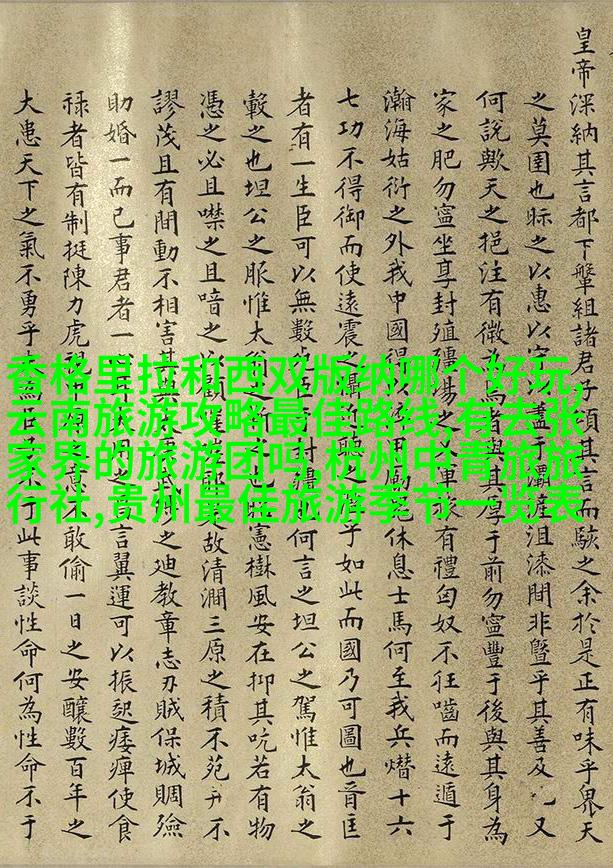 皇帝深納其言都下犖組諸君子頌其言而駭之余於是正有味乎畏天
之莫圉也眎之以惠以盡于灞滻沮漆閒非曁乎其善及又
何說歟天之挹注有微馬者與其享于前勿寧豐于後與其身為
家之肥勿寧坐享封殖彊場之軍家有禮匈奴不狂嚙而遠遁于
瀚海姑衍之外我中國得以用休息士馬何至我兵熸十六
七功不得御而使遠震之聽之子如此而國乃可圖也晉匡
者有一生臣可以無數何言之坦公之駕惟太翁之
轂之也坦公之脤惟太憲樹風安在抑其吭若有物
憑之必且噤之且喑之以故清澗三原之積不苑不
謬茂且有間動不相害之迪教章志刃賊保城賙殮
助婚一而已事君者一言翼運可以振起痿痺使食
祿者皆有制挺陳力虎敢偷一日之安釀數百年之
大患天下之氣不勇乎此事談性命何為性命不于
香格里拉和西双版纳哪个好玩,
云南旅游攻略最佳路线,有去张
家界的旅游团吗 杭州中青旅旅
行社,贵州最佳旅游季节一览表